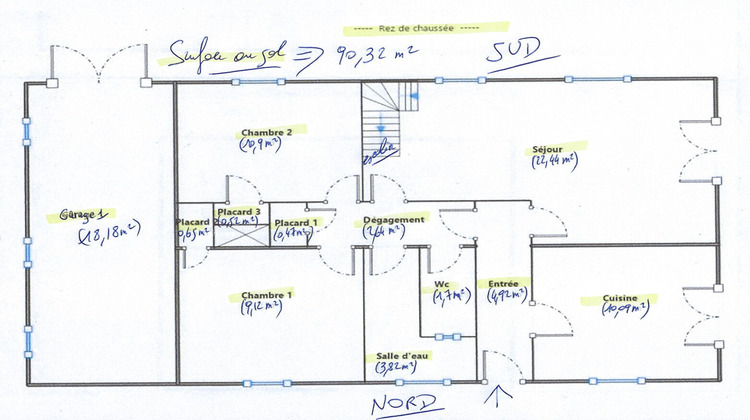 ----- Rez de chaussée -----
Surface au sol => 90,32 m²
SUD
Chambre 2
(10,9m²)
Séjour
(22,44m²)
Garage 1
(18,18m²)
Placard 2
0,65m²
Placard 3
(0,52m²)
Placard 1
(0,47m²)
Dégagement
(2,64m²)
Chambre 1
(9,12m²)
Wc
(1,7m²)
Entrée
(4,92m²)
Cuisine
(10,09m²)
Salle d'eau
(3,82m²)
NORD